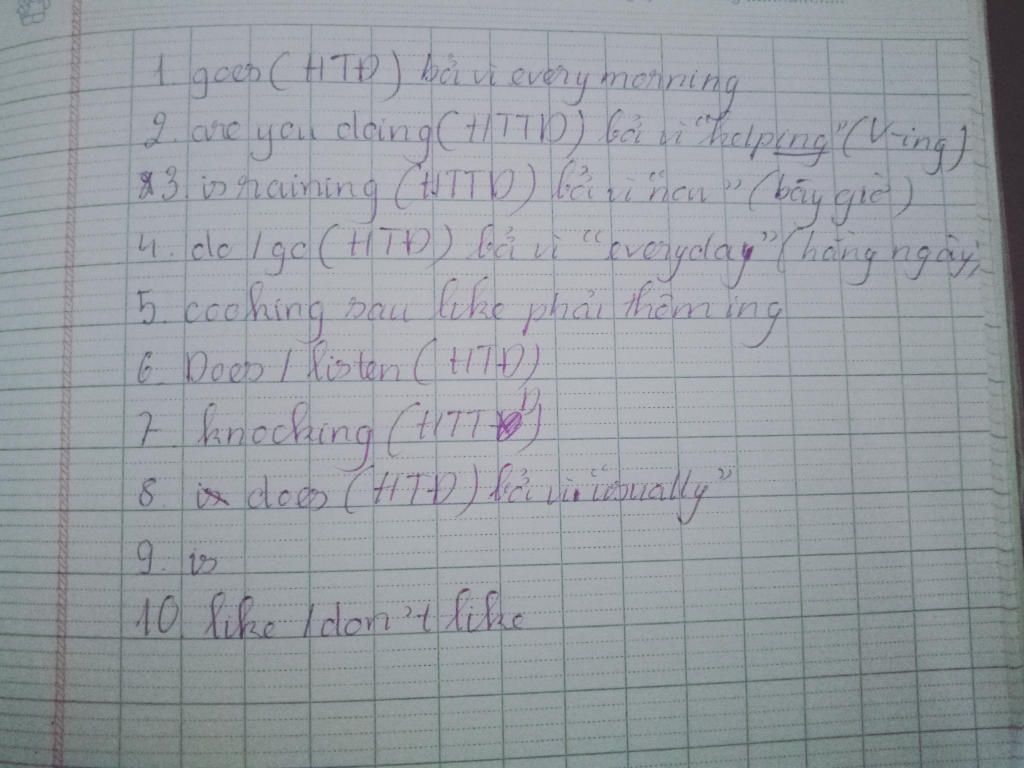 1. goes (HTĐ) bởi vì every morning
2. are you doing (HTTD) bởi vì "helping" (V-ing)
3. is raining (HTTD) bởi vì "now" (bây giờ)
4. do / go (HTĐ) bởi vì "everyday" (hằng ngày)
5. cooking sau like phải thêm ing
6. Does / listen (HTĐ)
7. knocking (HTTD)
8. does (HTĐ) bởi vì "usually"
9. is
10 like / don't like